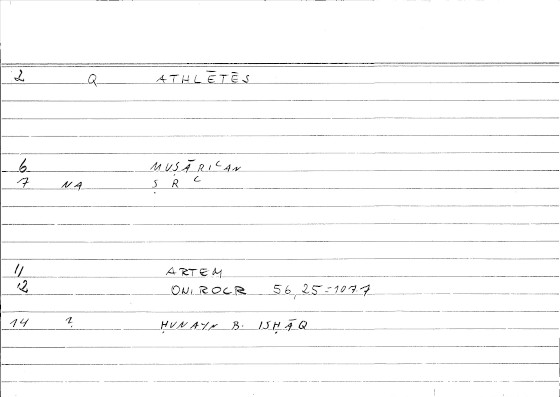 2 Q ATHLĒTĒS
6 MUṢĀRIʿAN
7 NA Ṣ R ʿ
11 ARTEM
12 ONIROCR 56,25=107,7
14 2 ḤUNAYN B. ISḤĀQ